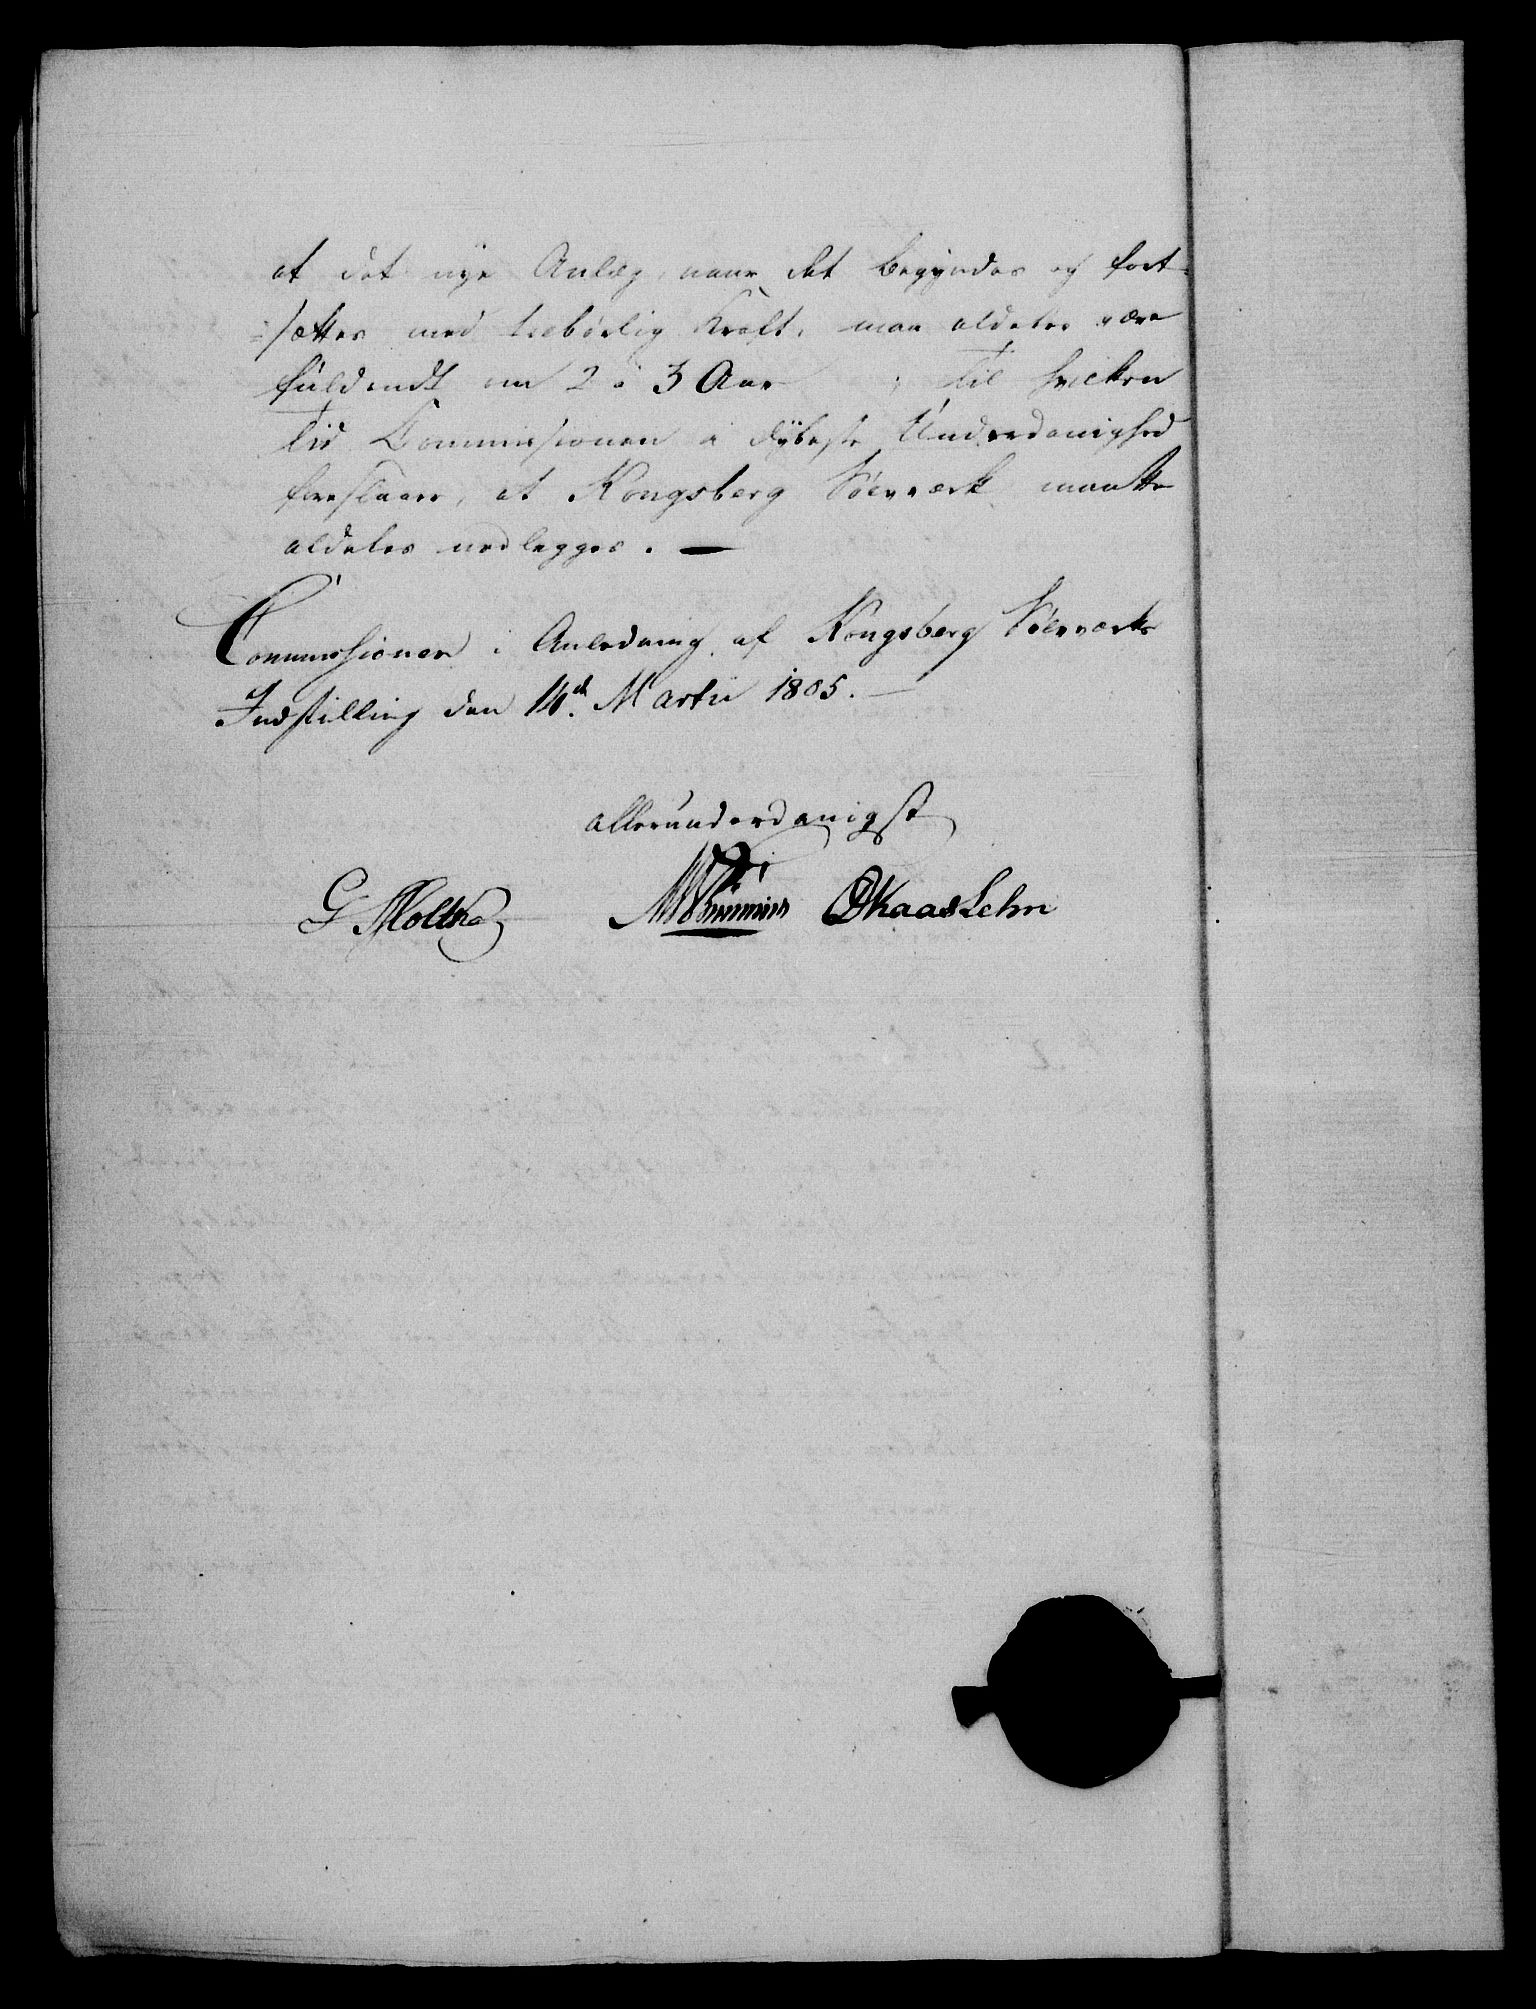 at det nye Anlæg, naar det begyndes og fort-
=sættes med tilbørlig Kraft, maa aldeles være
fuldendt om 2 à 3 Aar, til hvilken
Tid Commissionen i dybeste Underdanighed
foreslaaer, at Kongsberg Sölvværk maatte
aldeles nedlegges. —
Commissionen i Anledning af Kongsberg Sölvværks
Indstilling den 14de Martii 1805. —
allerunderdanigst
G Moltke
OKaasLehn